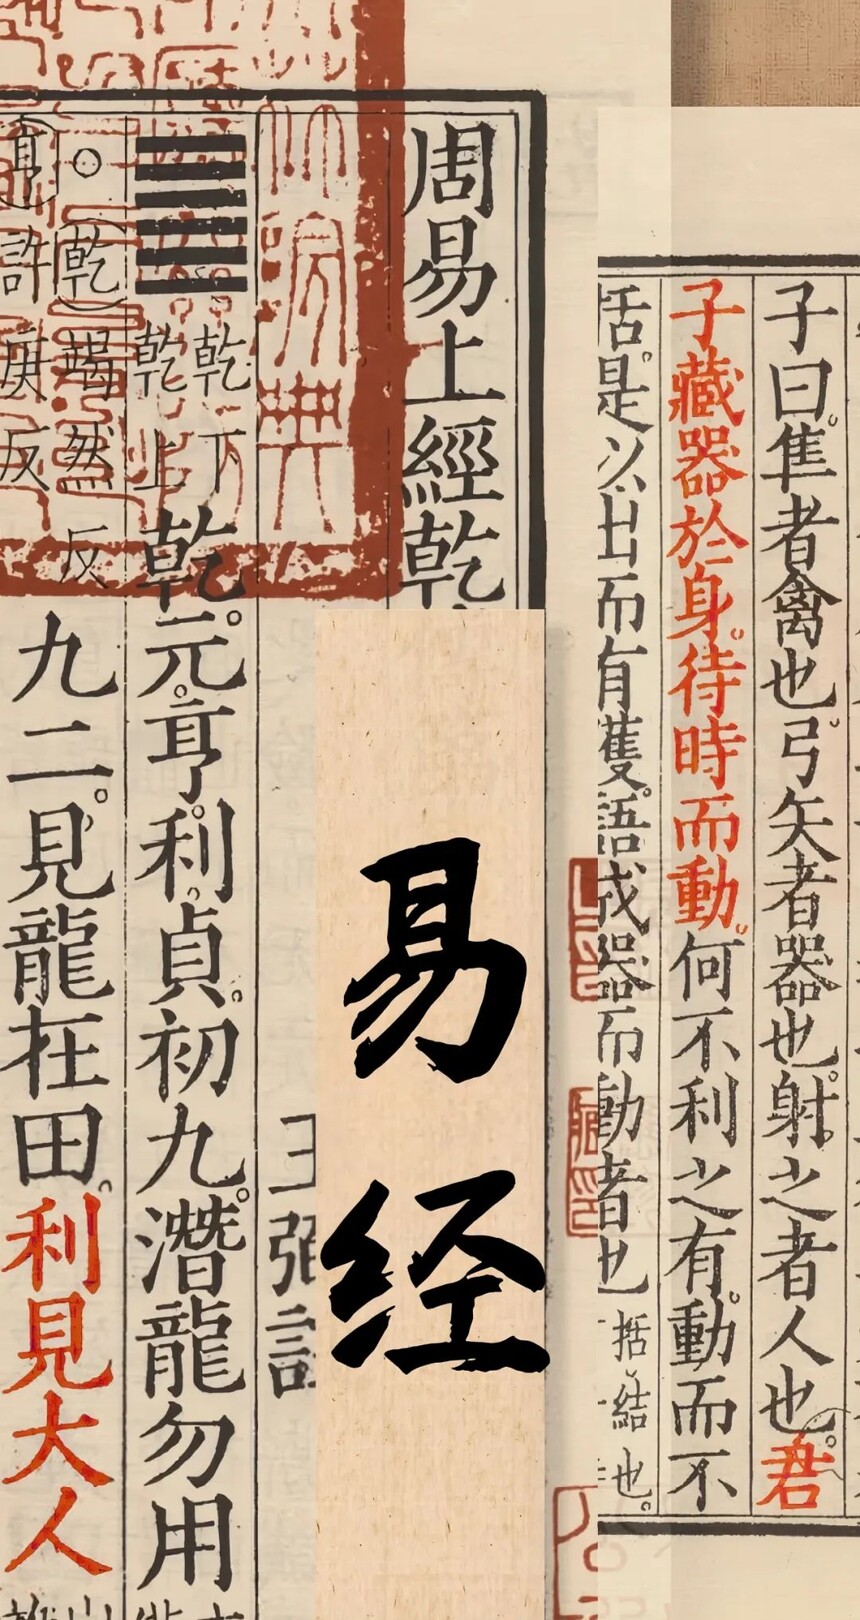 子曰隼者禽也弓矢者器也射之者人也君
子藏器於身待時而動何不利之有動而不
括是以出而有獲語成器而動者也 括結也
周易上經乾
乾下
乾上
乾元亨利貞初九潛龍勿用
王弼註
乾 竭然反
亨 許庚反
九二見龍在田利見大人
易经